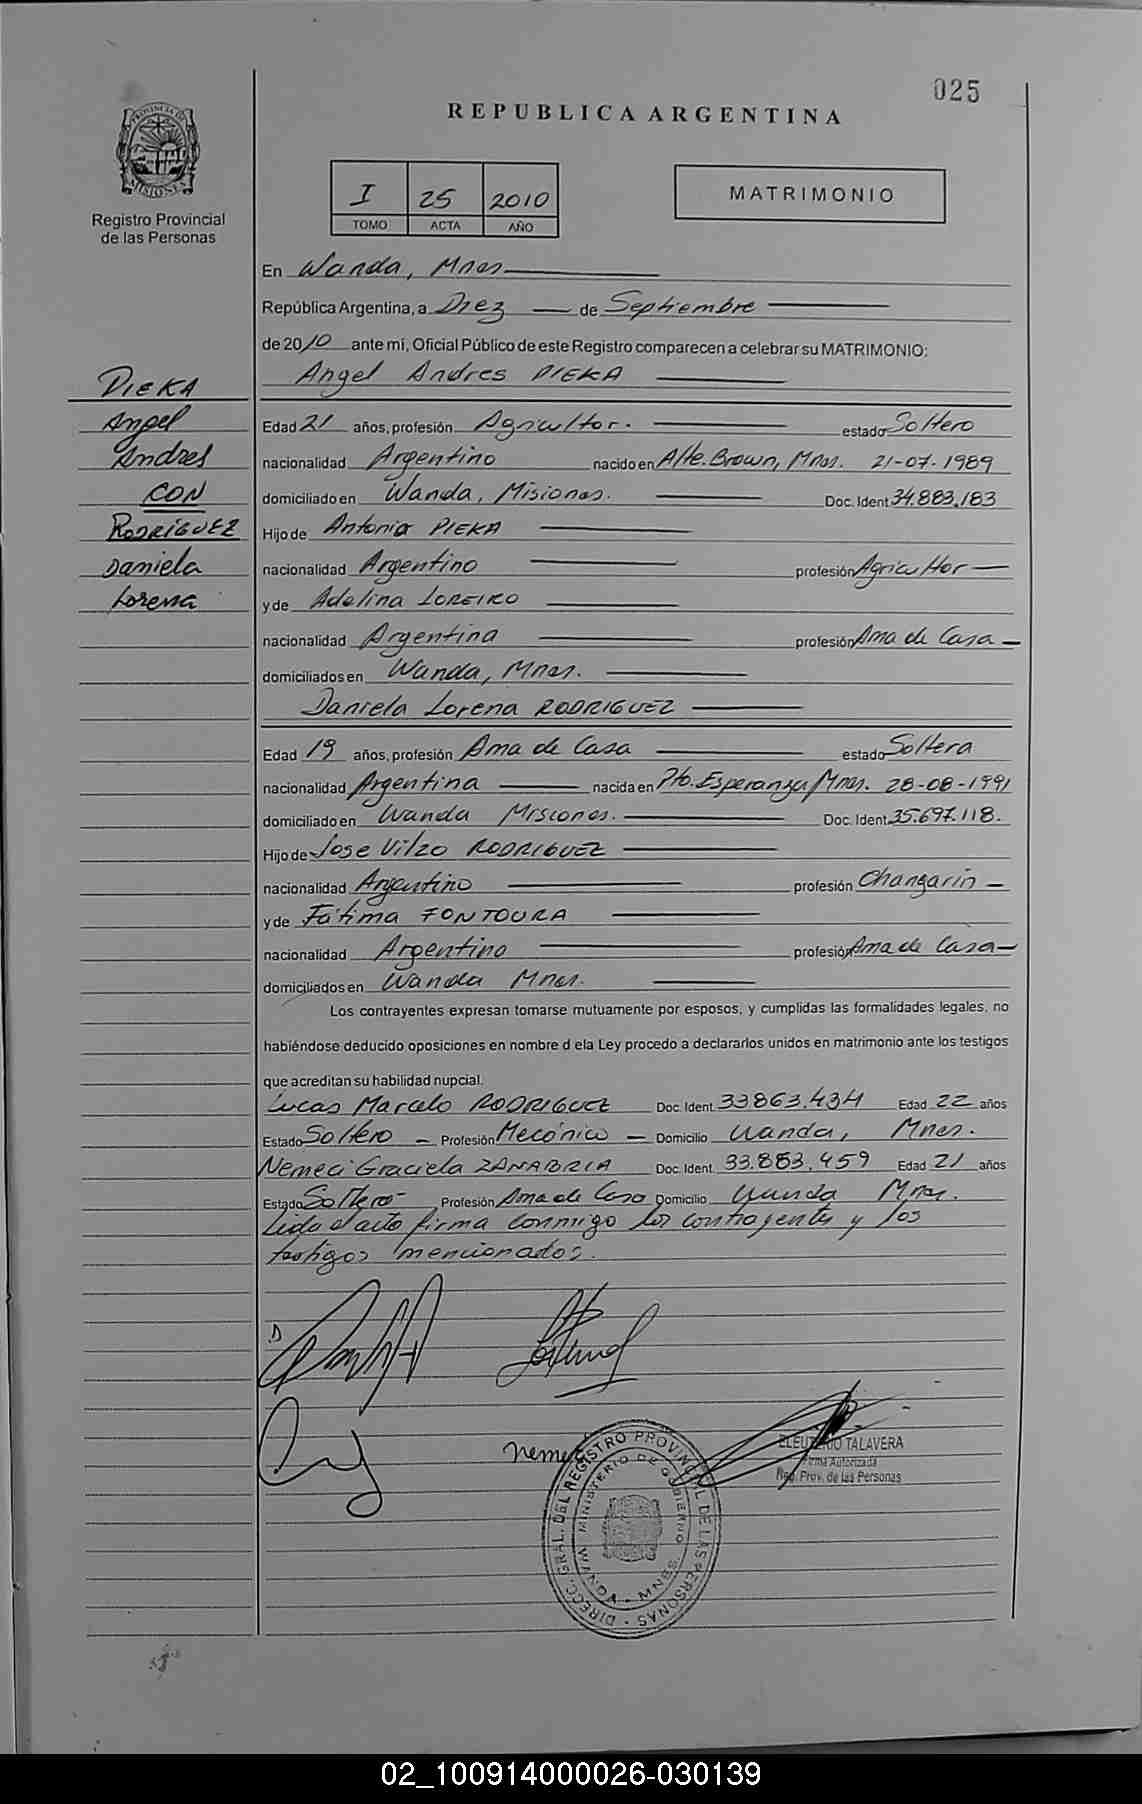 025
REPUBLICA ARGENTINA
PROVINCIA DE MISIONES
Registro Provincial
de las Personas
I 25 2010
TOMO ACTA AÑO
MATRIMONIO
En Wanda, Mnes
República Argentina, a Diez de Septiembre
de 2010 ante mi, Oficial Público de este Registro comparecen a celebrar su MATRIMONIO:
Angel Andres PIEKA
PIEKA
Angel
Andres
CON
RODRIGUEZ
Daniela
Lorena
Edad 21 años, profesión Agricultor. estado Soltero
nacionalidad Argentino nacido en Alte. Brown, Mnes. 21-07-1989
domiciliado en Wanda, Misiones. Doc. Ident 34.883.183
Hijo de Antonio PIEKA
nacionalidad Argentino profesión Agricultor
y de Adelina LOREIRO
nacionalidad Argentina profesión Ama de Casa
domiciliados en Wanda, Mnes.
Daniela Lorena RODRIGUEZ
Edad 19 años, profesión Ama de Casa estado Soltera
nacionalidad Argentina nacida en Pto. Esperanza, Mnes. 28-08-1991
domiciliado en Wanda Misiones. Doc. Ident 35.697.118.
Hijo de Jose Vilzo RODRIGUEZ
nacionalidad Argentino profesión Changarin
y de Fátima FONTOURA
nacionalidad Argentino profesión Ama de Casa
domiciliados en Wanda Mnes.
Los contrayentes expresan tomarse mutuamente por esposos, y cumplidas las formalidades legales, no
habiéndose deducido oposiciones en nombre d ela Ley procedo a declararlos unidos en matrimonio ante los testigos
que acreditan su habilidad nupcial.
Lucas Marcelo RODRIGUEZ Doc. Ident. 33863.434 Edad 22 años
Estado Soltero Profesión Mecánico Domicilio Wanda, Mnes.
Nemeci Graciela ZANABRIA Doc. Ident. 33.883.459 Edad 21 años
Estado Soltero Profesión Ama de Casa Domicilio Wanda Mnes.
Leida el acto firma conmigo los contrayentes y los
testigos mencionados.
Nemeci
ELEUTERIO TALAVERA
Firma Autorizada
Reg. Prov. de las Personas
DIRECC. GRAL. DEL REGISTRO PROVINCIAL DE LAS PERSONAS
MINISTERIO DE GOBIERNO
WANDA - MNES.
02_100914000026-030139